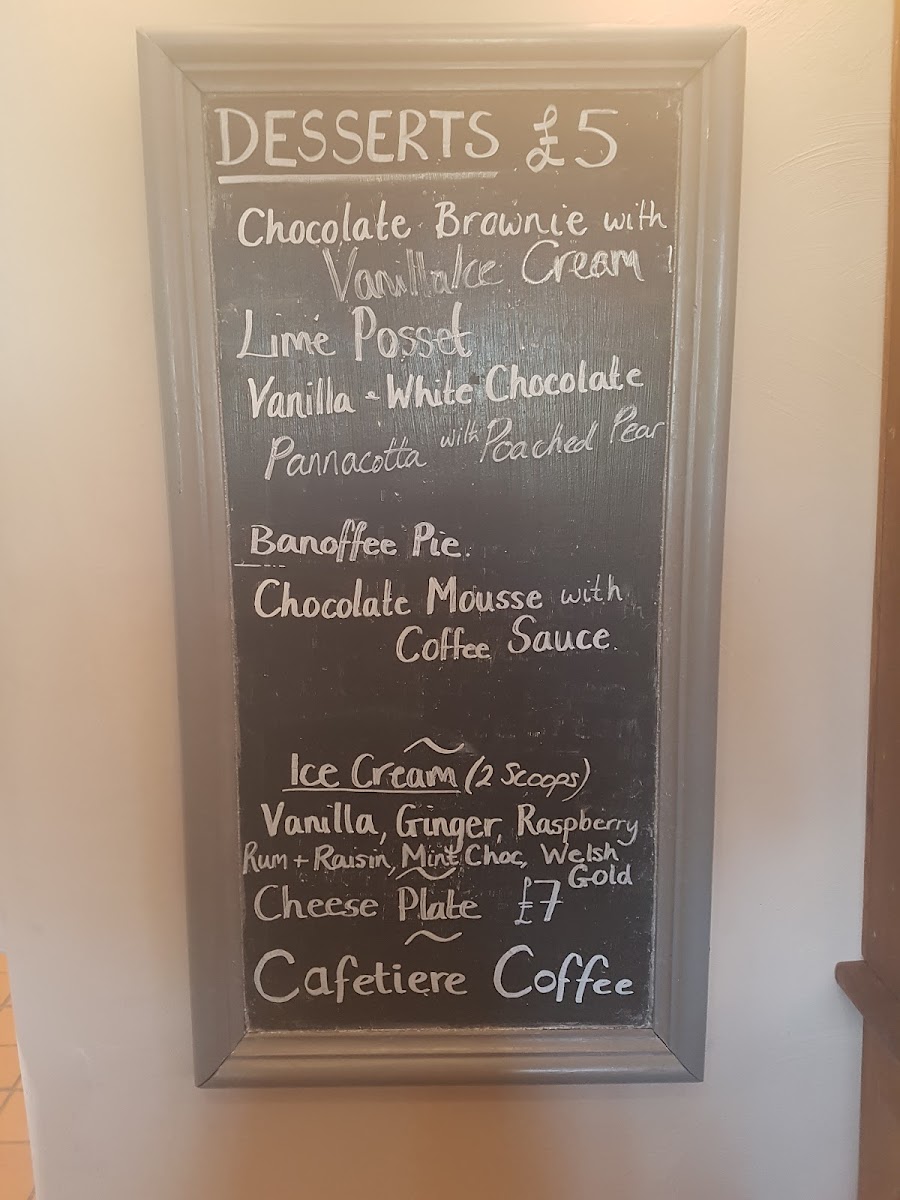 DESSERTS £5
Chocolate Brownie with
Vanilla Ice Cream
Lime Posset
Vanilla - White Chocolate
Pannacotta with Poached Pear
Banoffee Pie.
Chocolate Mousse with
Coffee Sauce.
Ice Cream (2 Scoops)
Vanilla, Ginger, Raspberry
Rum + Raisin, Mint Choc, Welsh
Gold
Cheese Plate £7
Cafetiere Coffee